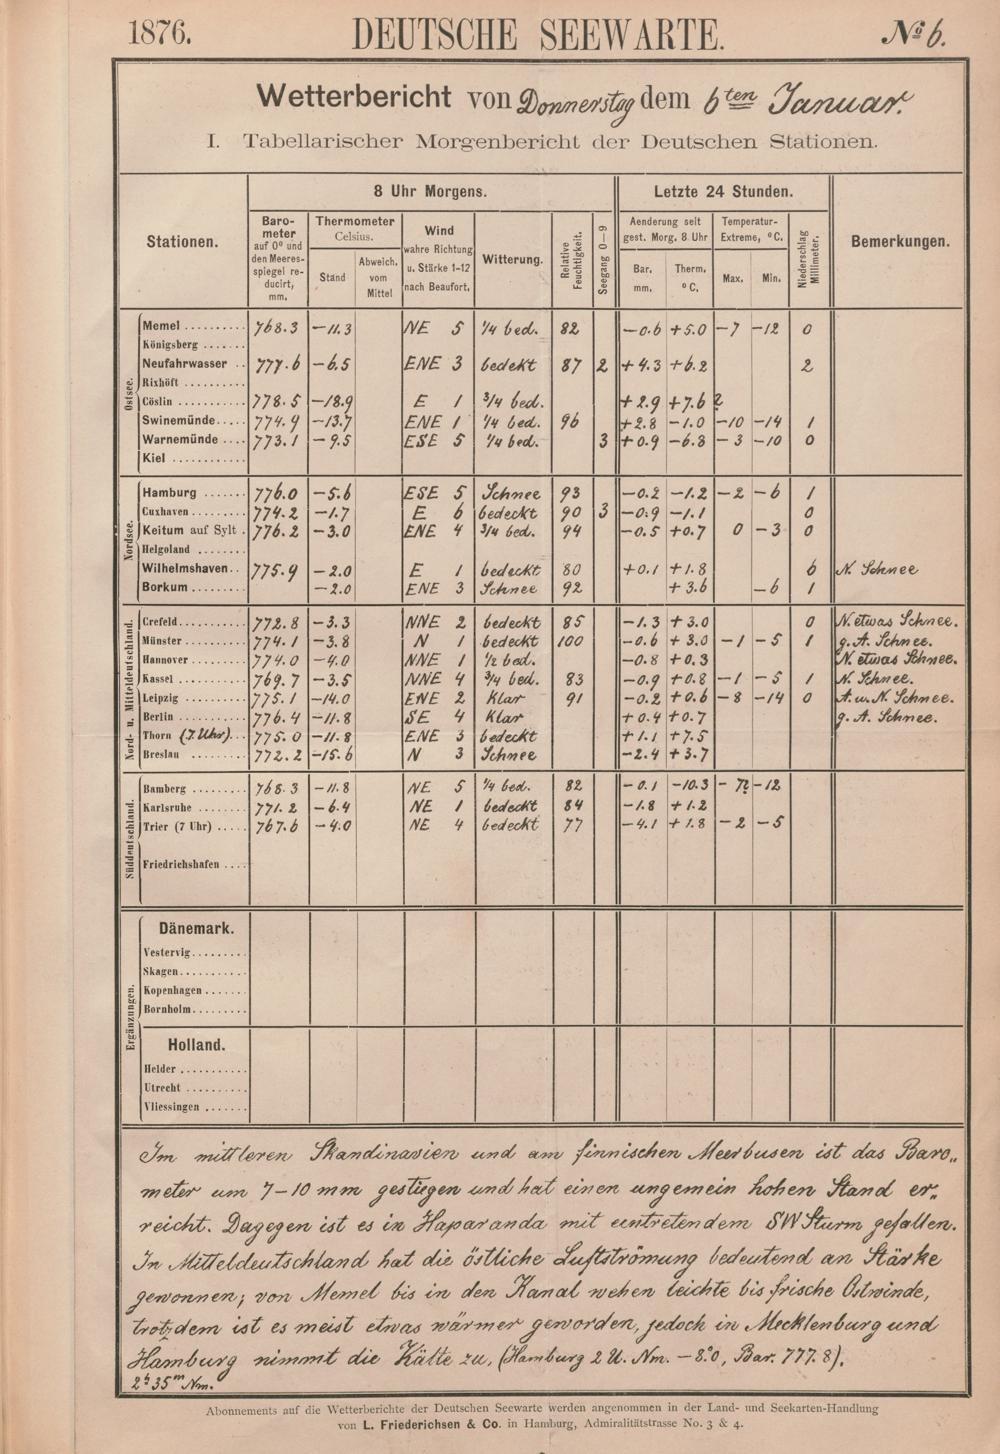 1876. DEUTSCHE SEEWARTE. No 6.
Wetterbericht von Donnerstag dem 6ten Januar.
I. Tabellarischer Morgenbericht der Deutschen Stationen.
Stationen. 8 Uhr Morgens. Letzte 24 Stunden. Bemerkungen.
Barometer auf 0° und den Meeresspiegel reducirt, mm. Thermometer Celsius. Stand Abweich. vom Mittel Wind wahre Richtung u. Stärke 1-12 nach Beaufort. Witterung. Relative Feuchtigkeit. Seegang 0-9 Aenderung seit gest. Morg. 8 Uhr Bar. mm. Therm. °C. Temperatur-Extreme, °C. Max. Min. Niederschlag Millimeter.
Ostsee.
Memel 768.3 -11.3 NE 5 1/4 bed. 82 -0.6 +5.0 -7 -12 0
Königsberg
Neufahrwasser 777.6 -6.5 ENE 3 bedekt 87 2 +4.3 +6.2 2
Rixhöft
Cöslin 778.5 -18.9 E 1 3/4 bed. +2.9 +7.6 ?
Swinemünde 774.9 -13.7 ENE 1 1/4 bed. 96 +2.8 -1.0 -10 -14 1
Warnemünde 773.1 -9.5 ESE 5 1/4 bed. 3 +0.9 -6.3 -3 -10 0
Kiel
Nordsee.
Hamburg 776.0 -5.6 ESE 5 Schnee 93 -0.2 -1.2 -2 -6 1
Cuxhaven 774.2 -1.7 E 6 bedeckt 90 3 -0.9 -1.1 0
Keitum auf Sylt 776.2 -3.0 ENE 4 3/4 bed. 94 -0.5 +0.7 0 -3 0
Helgoland
Wilhelmshaven 775.9 -2.0 E 1 bedeckt 80 +0.1 +1.8 6 N. Schnee
Borkum -2.0 ENE 3 Schnee 92 +3.6 -6 1
Nord- u. Mitteldeutschland.
Crefeld 772.8 -3.3 NNE 2 bedeckt 85 -1.3 +3.0 0 N. etwas Schnee.
Münster 774.1 -3.8 N 1 bedeckt 100 -0.6 +3.0 -1 -5 1 g. A. Schnee.
Hannover 774.0 -4.0 NNE 1 1/2 bed. -0.8 +0.3 N. etwas Schnee.
Kassel 769.7 -3.5 NNE 4 3/4 bed. 83 -0.9 +0.8 -1 -5 1 N. Schnee.
Leipzig 775.1 -14.0 ENE 2 Klar 91 -0.2 +0.6 -8 -14 0 A. u. N. Schnee.
Berlin 776.4 -11.8 SE 4 Klar +0.4 +0.7 g. A. Schnee.
Thorn (7. Uhr) 775.0 -11.8 ENE 3 bedeckt +1.1 +7.5
Breslau 772.2 -15.6 N 3 Schnee -2.4 +3.7
Süddeutschland.
Bamberg 768.3 -11.8 NE 5 1/4 bed. 82 -0.1 -10.3 -7? -12
Karlsruhe 771.2 -6.4 NE 1 bedeckt 84 -1.8 +1.2
Trier (7 Uhr) 767.6 -4.0 NE 4 bedeckt 77 -4.1 +1.8 -2 -5
Friedrichshafen
Ergänzungen.
Dänemark.
Vestervig
Skagen
Kopenhagen
Bornholm
Holland.
Helder
Utrecht
Vliessingen
Im mittleren Skandinavien und am finnischen Meerbusen ist das Baro„
meter um 7-10 mm gestiegen und hat einen ungemein hohen Stand er„
reicht. Dagegen ist es in Haparanda mit eintretendem SW Sturm gefallen.
In Mitteldeutschland hat die östliche Luftströmung bedeutend an Stärke
gewonnen; von Memel bis in den Kanal wehen leichte bis frische Ostwinde,
trotzdem ist es meist etwas wärmer geworden, jedoch in Mecklenburg und
Hamburg nimmt die Kälte zu, (Hamburg 2 U. Nm. -8.°0, Bar. 777.8).
2h 35m Nm.
Abonnements auf die Wetterberichte der Deutschen Seewarte werden angenommen in der Land- und Seekarten-Handlung
von L. Friederichsen & Co. in Hamburg, Admiralitätstrasse No. 3 & 4.